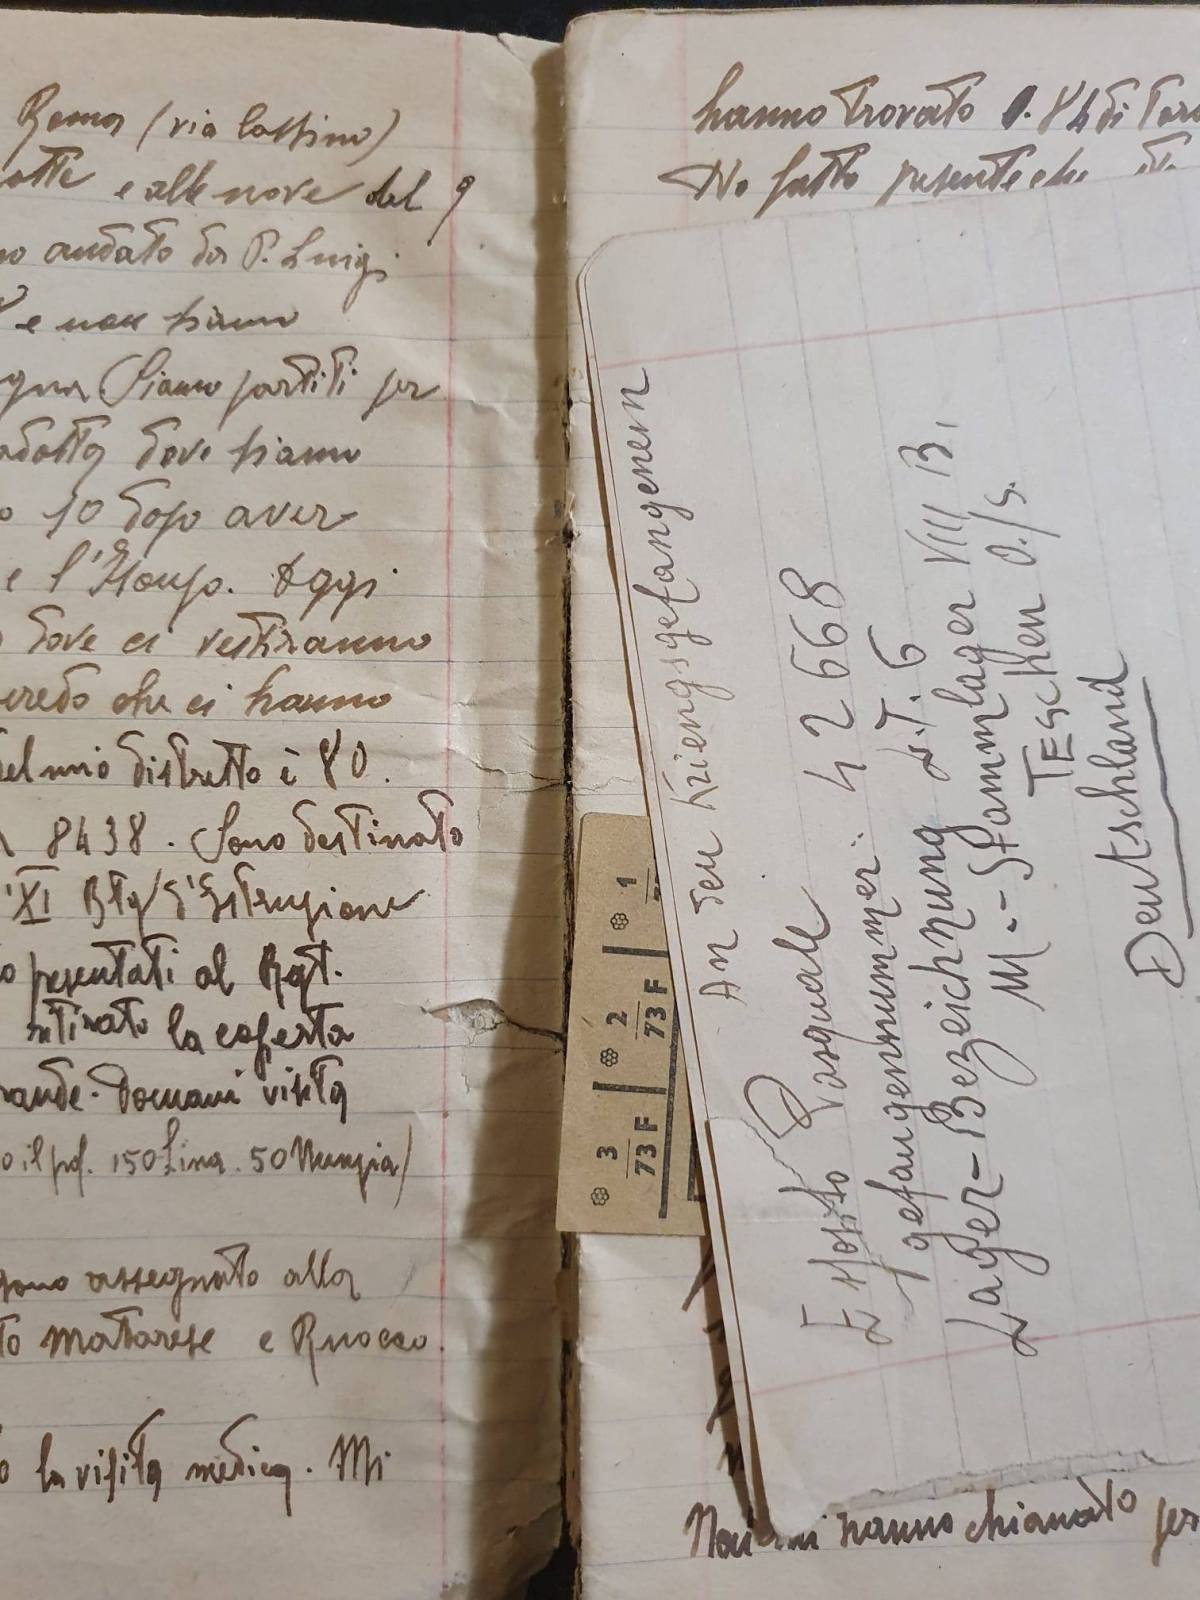 Roma (via Cassino)
otte e alle nove del 9
no andato da P. Luigi
e non siamo
gna Siamo partiti per
adotta dove siamo
o 10 dopo aver
e l'Isonzo. Oggi
dove ci vestiranno
credo che ci hanno
del mio distretto è 80.
8438. Sono destinato
XI Btg d'Istruzione
o presentati al Rgt.
ritirato la coperta
rande. Domani visita
o il prof. 150 Lina. 50 Nunzia)
gono assegnato alla
to Matarese e Ruocco.
o la visita medica. Mi
hanno trovato 0.84 di Tora
Ho fatto presente che
An den Kriengsgefangenen
Esposito Pasquale
Gefangennummer: 42668
Lager-Bezeichnung L.T. 6
M.-Stammlager VIII B,
TEschen O./S.
Deutschland
1
73
2
73 F
3
73 F
hanno chiamato per